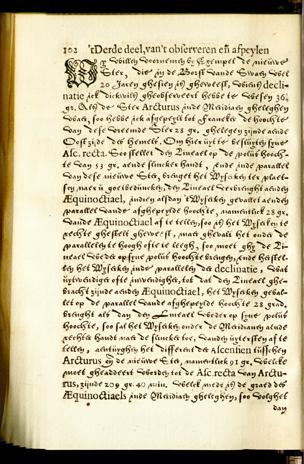 102 'tDerde deel, van't observeren eñ afpeylen
WY willen voornemen by Exempel de nieuwe
Ster, die in de Borst vande Swaen over
20 Jaren ghesien is gheweest, wiens decli-
natie ick dickwils gheobserveert hebbe te wesen 36
gr. Als de Ster Arcturus inde Meridiaen gheleghen
was, soo hebbe ick afghepeylt tot Francker de hoochte
van dese vreemde Ster 28 gr. gheleghen zijnde aende
Oostzijde des Hemels. Om hier uyt te besluyten sijne
Asc. recta. Soo stellet den Lineael op de polus hooch-
te van 53 gr. aende slincker handt, ende inde parallel
van dese nieuwe Ster, brenget het Wijsertken ter plaet-
sen, naer u goetduncken, den Lineael verbrenght aenden
Æquinoctiael, indien alsdan 't Wijsertken ghevalt aenden
parallel vande afghepeylde hoochte, namentlick 28 gr.
vande Æquinoctiael af te tellen, soo is het Wijsertken te
rechte ghestelt gheweest, maer ghevalt het onder de
parallelen te hoogh ofte te leegh, soo moet ghy de Li-
neael weder op sijne polus hoochte brenghen, ende herstel-
len het Wijsertken inde parallel der declinatie, wat
uytwendigher ofte inwendigher, tot dat den Lineael ghe-
bracht zijnde aenden Æquinoctiael, het Wijsertken gheval-
let op de parallel vande afghepeylde hoochte 28 grad.
brenght als dan den Lineael weder op sijne polus
hoochte, soo sal het Wijsertken onder de Meridianen aende
rechter handt naer de slincker toe, vanden uytersten af te
tellen, aenwijsen het different der Ascensien tusschen
Arcturus eñ de nieuwe Ster, namentlick 91 gr. welcke
moet gheaddeert worden tot de Asc. recta van Arctu-
rus, zijnde 209 gr. 40 min. welck mede is de graed des
Æquinoctiaels inde Meridiaen gheleghen, soo volghet
dan